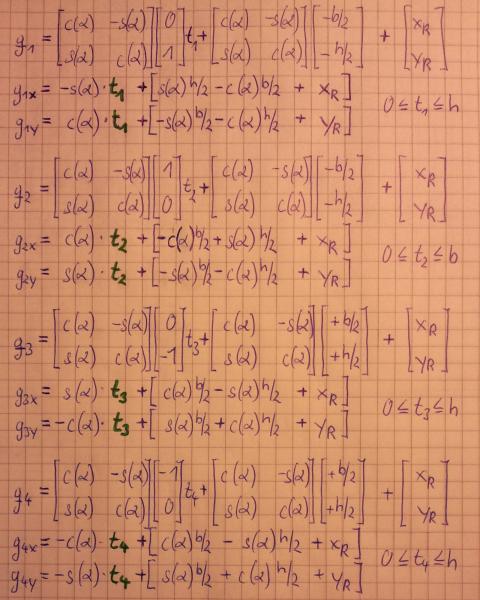 g₁ = [c(α) -s(α); s(α) c(α)] [0; 1] t₁ + [c(α) -s(α); s(α) c(α)] [-b/2; -h/2] + [x_R; y_R]
g₁ₓ = -s(α)·t₁ + [s(α)h/2 - c(α)b/2 + x_R]
0 ≤ t₁ ≤ h
g₁ᵧ = c(α)·t₁ + [-s(α)b/2 - c(α)h/2 + y_R]
g₂ = [c(α) -s(α); s(α) c(α)] [1; 0] t₂ + [c(α) -s(α); s(α) c(α)] [-b/2; -h/2] + [x_R; y_R]
g₂ₓ = c(α)·t₂ + [-c(α)b/2 + s(α)h/2 + x_R]
0 ≤ t₂ ≤ b
g₂ᵧ = s(α)·t₂ + [-s(α)b/2 - c(α)h/2 + y_R]
g₃ = [c(α) -s(α); s(α) c(α)] [0; -1] t₃ + [c(α) -s(α); s(α) c(α)] [+b/2; +h/2] + [x_R; y_R]
g₃ₓ = s(α)·t₃ + [c(α)b/2 - s(α)h/2 + x_R]
0 ≤ t₃ ≤ h
g₃ᵧ = -c(α)·t₃ + [s(α)b/2 + c(α)h/2 + y_R]
g₄ = [c(α) -s(α); s(α) c(α)] [-1; 0] t₄ + [c(α) -s(α); s(α) c(α)] [+b/2; +h/2] + [x_R; y_R]
g₄ₓ = -c(α)·t₄ + [c(α)b/2 - s(α)h/2 + x_R]
0 ≤ t₄ ≤ h
g₄ᵧ = -s(α)·t₄ + [s(α)b/2 + c(α)h/2 + y_R]